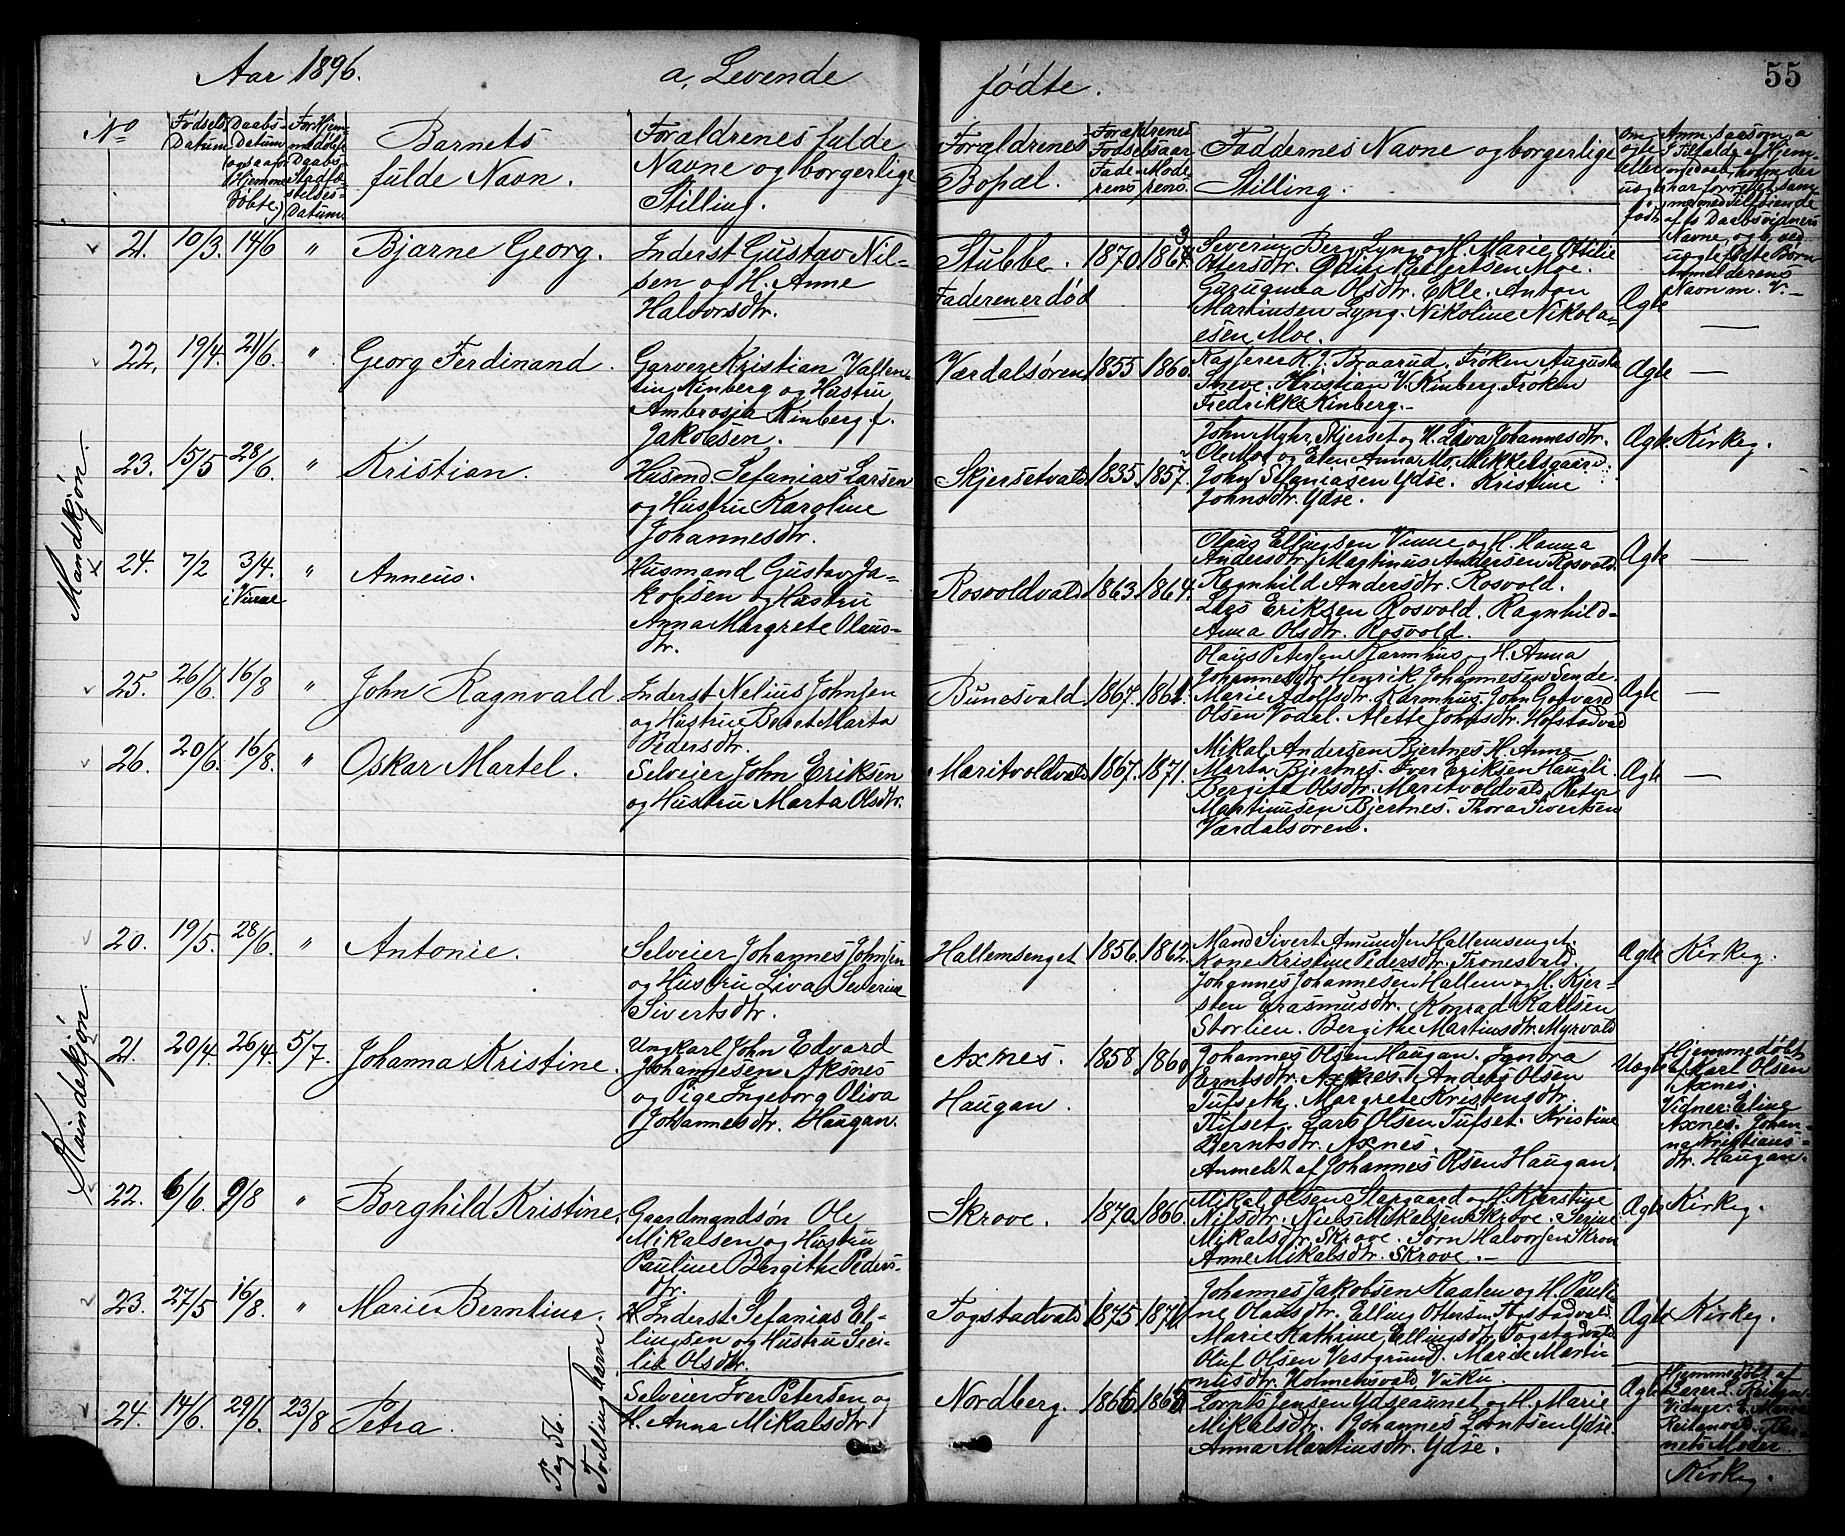 Aar 1896. a, Levende fødte. 55
No
Fødsels Datum
Daabs-
Datum
ogsaa for
Hjemme
døbte)
For Hjem-
medøbte
Daabs-
Stadfæ-
stelses-
Datum
Barnets
fulde Navn.
Forældrenes fulde
Navne og borgerlige
Stilling.
Forældrenes
Bopæl.
Forældrenes
Fødselsaar
Fade-
rens
Mode-
rens
Faddernes Navne og borgerlige
Stilling.
Om
ægte
eller
uægte
født
Mandkjøn.
21. 10/3. 14/6 " Bjarne Georg.
Inderst Gustav Nil-
sen og H. Anne
Halvorsdtr.
Stubbe.
Faderen er død
1870 1864
Severin Berg Lyng og H. Marie Ottilie
Ottersdtr.
Olsdtr. Ekle. Anton
Martinsen Lyng. Nikoline Nikola-
esen Moe.
Ægte —
22. 19/4. 21/6. " Georg Ferdinand.
Garver Kristian Valten-
tin Kinberg og Hustru
Ambrosia Kinberg f.
Jakobsen.
Værdalsøren 1855 1860
Kasserer K. J. Braarud. Frøken Augusta
Sneve. Kristian V. Kinberg. Frøken
Fredrikke Kinberg.-
Ægte —
23. 15/5 28/6. " Kristian.
Husmd. Sefanias Larsen
og Hustru Karoline
Johannesdtr.
Skjersetvald 1835 1857
John Myhr, Skjerset og H. Liva Johannesdtr.
Ole Moe og Elen Anna Mo, Mikkelsgaard.
John Sefaniasen Ydse. Kristine
Johnsdtr. Ydse.
Ægte Kirkeg.
24. 7/2 3/4. " Anneus.
i Vinne
Husmand Gustav Ja-
kobsen og Hustru
Anna Margrete Olaus-
dtr.
Rosvoldvald 1863 1864.
Olaus Ellingsen Vinne og H. Hanna
Andersdtr. Magtinus Andersen Rosvold.
Ragnhild Andersdtr. Rosvold.
Lars Eriksen Rosvold. Ragnhild-
Anna Olsdtr. Rosvold.
Ægte —
25. 26/6. 16/8 " John Ragnvald.
Inderst Nelius Johnsen
og Hustru Beret Marta
Pedersdtr.
Bunesvald 1867. 1861.
Olaus Petersen Karmhus og H. Anna
Johannesdtr. Henrik Johannesen Sende.
Marie Adolfsdtr. Karmhus. John Gotvard
Olsen Vodal. Alette Johnsdtr. Hofstadvad
Ægte —
26. 20/6. 16/8. " Oskar Martel.
Selveier John Eriksen
og Hustru Marta Olsdtr.
Maritvoldvald 1867. 1871.
Mikal Andersen Bjertnes H. Anne
Marta Bjertnes. Iver Eriksen Haugli.
Bergite Olsdtr. Maritvoldvald, Peter
Martinusen Bjertnes. Thora Sivertsen
Værdalsøren.
Ægte —
Kvindekjøn.
20. 19/5. 28/6. " Antonie.
Selveier Johannes Johnsen
og Hustru Liva Severine
Sivertsdtr.
Hallemsenget 1856. 1862.
Mand Sivert Amundsen Hallemsenget.
Kone Kristine Pedersdtr. Tronesvald.
Johannes Johannesen Hallem og H. Kjer-
sten Erasmusdtr. Konrad Karlsen
Storlien. Bergithe Martinsdtr. Myrvald
Ægte Kirkeg.
21. 20/4. 26/4. 5/7. Johanna Kristine.
Ungkarl John Edvard
Johannesen Aksnes
og Pige Ingeborg Oliva
Johannesdtr. Haugan.
Axnes.
Haugan.
1858 1860
Johannes Olsen Haugan.
Berntsdtr. Axnes. Anders Olsen
Tufseth. Margrete Kristensdtr.
Tufset. Lars Olsen Tufset. Kristine
Berntsdtr. Axnes.
Anmeldt af Johannes Olsen Haugan.
Uægte
Hjemmedøbt
af Karl Olsen
Axnes.
Vidner: Eline
Axnes. Johan-
na Kristians-
dtr. Haugan.
22. 6/6. 9/8 " Borghild Kristine.
Gaardmandsøn Ole
Mikalsen og Hustru
Pauline Bergithe Peders-
dtr.
Skrove. 1870. 1866.
Mikal Olsen Slapgaard og H. Kjerstine
Nilsdtr. Niels Mikalsen Skrove. Serine
Mikalsdtr. Skrove. Sørn Halvorsen Skrove
Anne Mikalsdtr. Skrove.—
Ægte Kirkeg.
23. 27/5 16/8. " Marie Berntine.
Inderst Sefanias El-
lingsen og Hustru
Olsdtr.
Fogstadvald 1875 1871
Johannes Jakobsen Kaalen og H. Pauli-
ne Olausdtr. Elling Ottersen Fogstadvald
Marie Kathrine Ellingsdtr. Fogstadvald
Oluf Olsen Vestgrund. Marie Marti-
nusdtr. Holmensvald, Vuku.
Ægte Kirkeg.
24. 14/6. 29/6. 23/8 Petra.
Selveier Iver Petersen og
H. Anna Mikalsdtr.
Nordberg. 1866
Lornts Jensen Ydseaunet og H. Marie
Mikalsdtr. Johannes Lorntsen Ydse.
Anna Martinsdtr. Ydse.
Ægte
Hjemmedøbt af
Moder.
Kirkeg.
Pag 56.
Tvillingbarn.